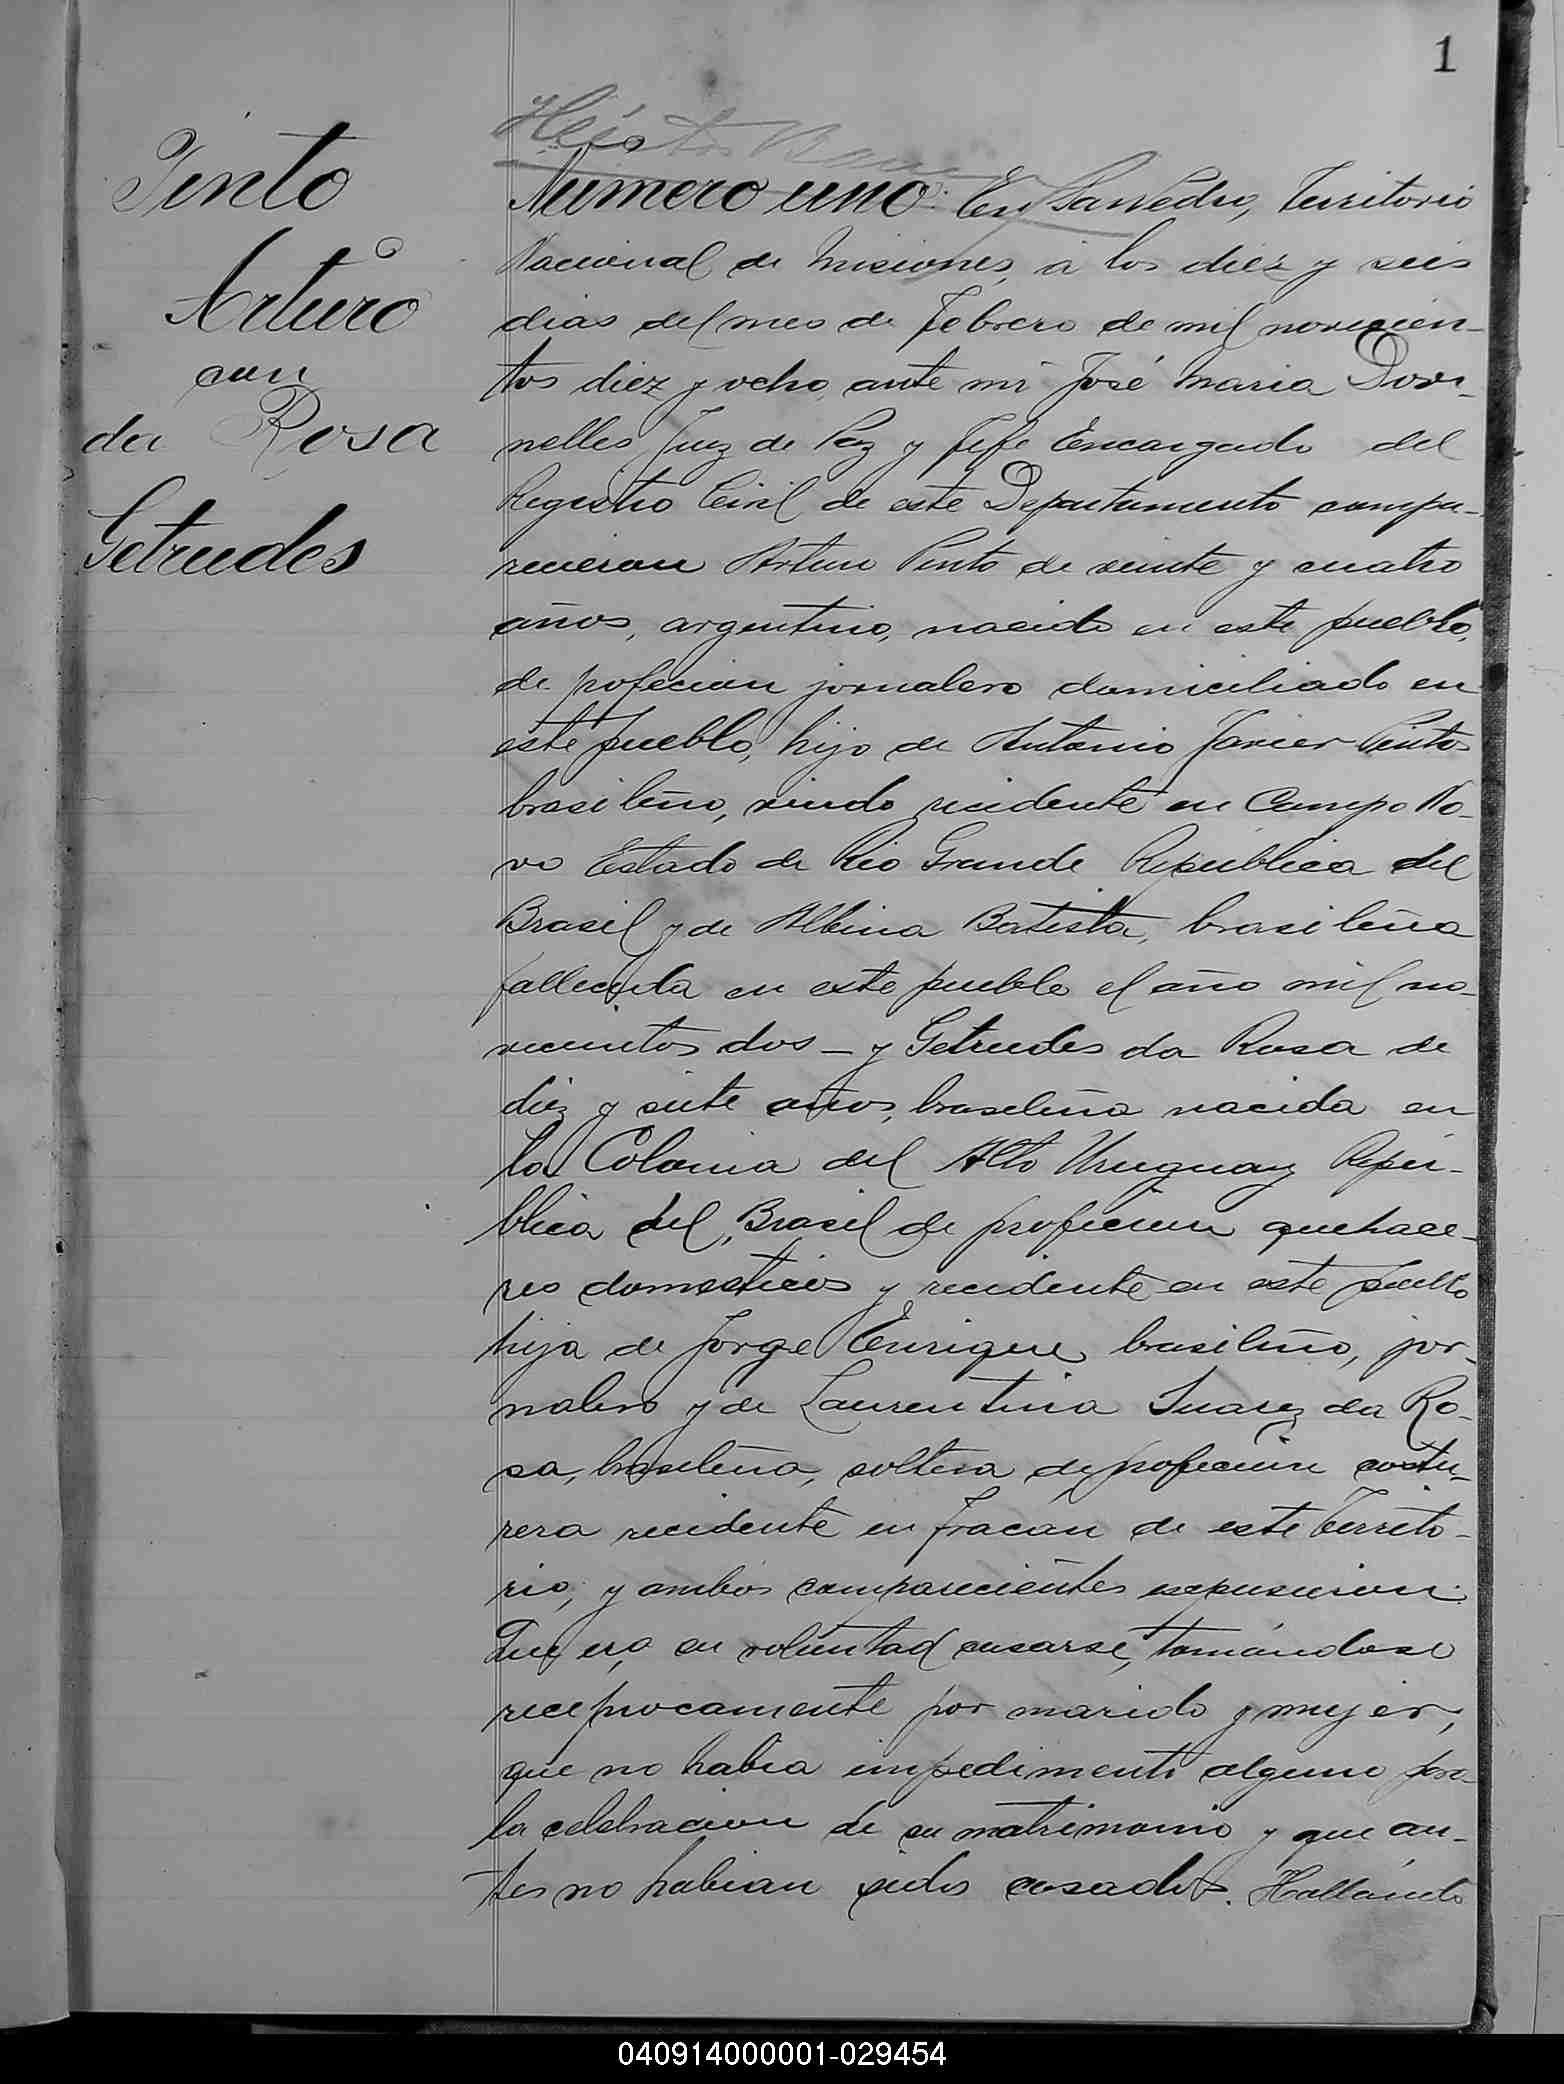 1
Pinto
Arturo
con
da Rosa
Getrudes
Numero uno. En San Pedro, Territorio
Nacional de Misiones, á los diez y seis
dias del mes de Febrero de mil novecien-
tos diez y ocho, ante mi José Maria Dor-
nelles Juez de Paz y Jefe Encargado del
Registro Civil de este Departamento compa-
recieron Arturo Pinto de veinte y cuatro
años, argentino, nacido en este pueblo,
de profecion jornalero domiciliado en
este pueblo, hijo de Antonio Javier Pinto
brasileño, viudo recidente en Campo No-
vo Estado de Rio Grande República del
Brasil y de Albina Batista, brasileña
fallecida en este pueblo el año mil no-
vecientos dos - y Getrudes da Rosa de
diez y siete años, brasileña nacida en
la Colonia del Alto Uruguay Repú-
blica del Brasil de profecion quehace-
res domesticos y recidente en este pueblo
hija de Jorge Enrique brasileño, jor-
nalero y de Laurentina Suarez da Ro-
sa, brasileña, soltera de profecion costu-
rera recidente en Fracán de este Territo-
rio, y ambos comparecientes expusieron:
Que era su voluntad casarse, tomándose
reciprocamente por marido y mujer,
que no habia impedimento alguno para
la celebracion de su matrimonio y que an-
tes no habian sidos casados. Hallándo
040914000001-029454